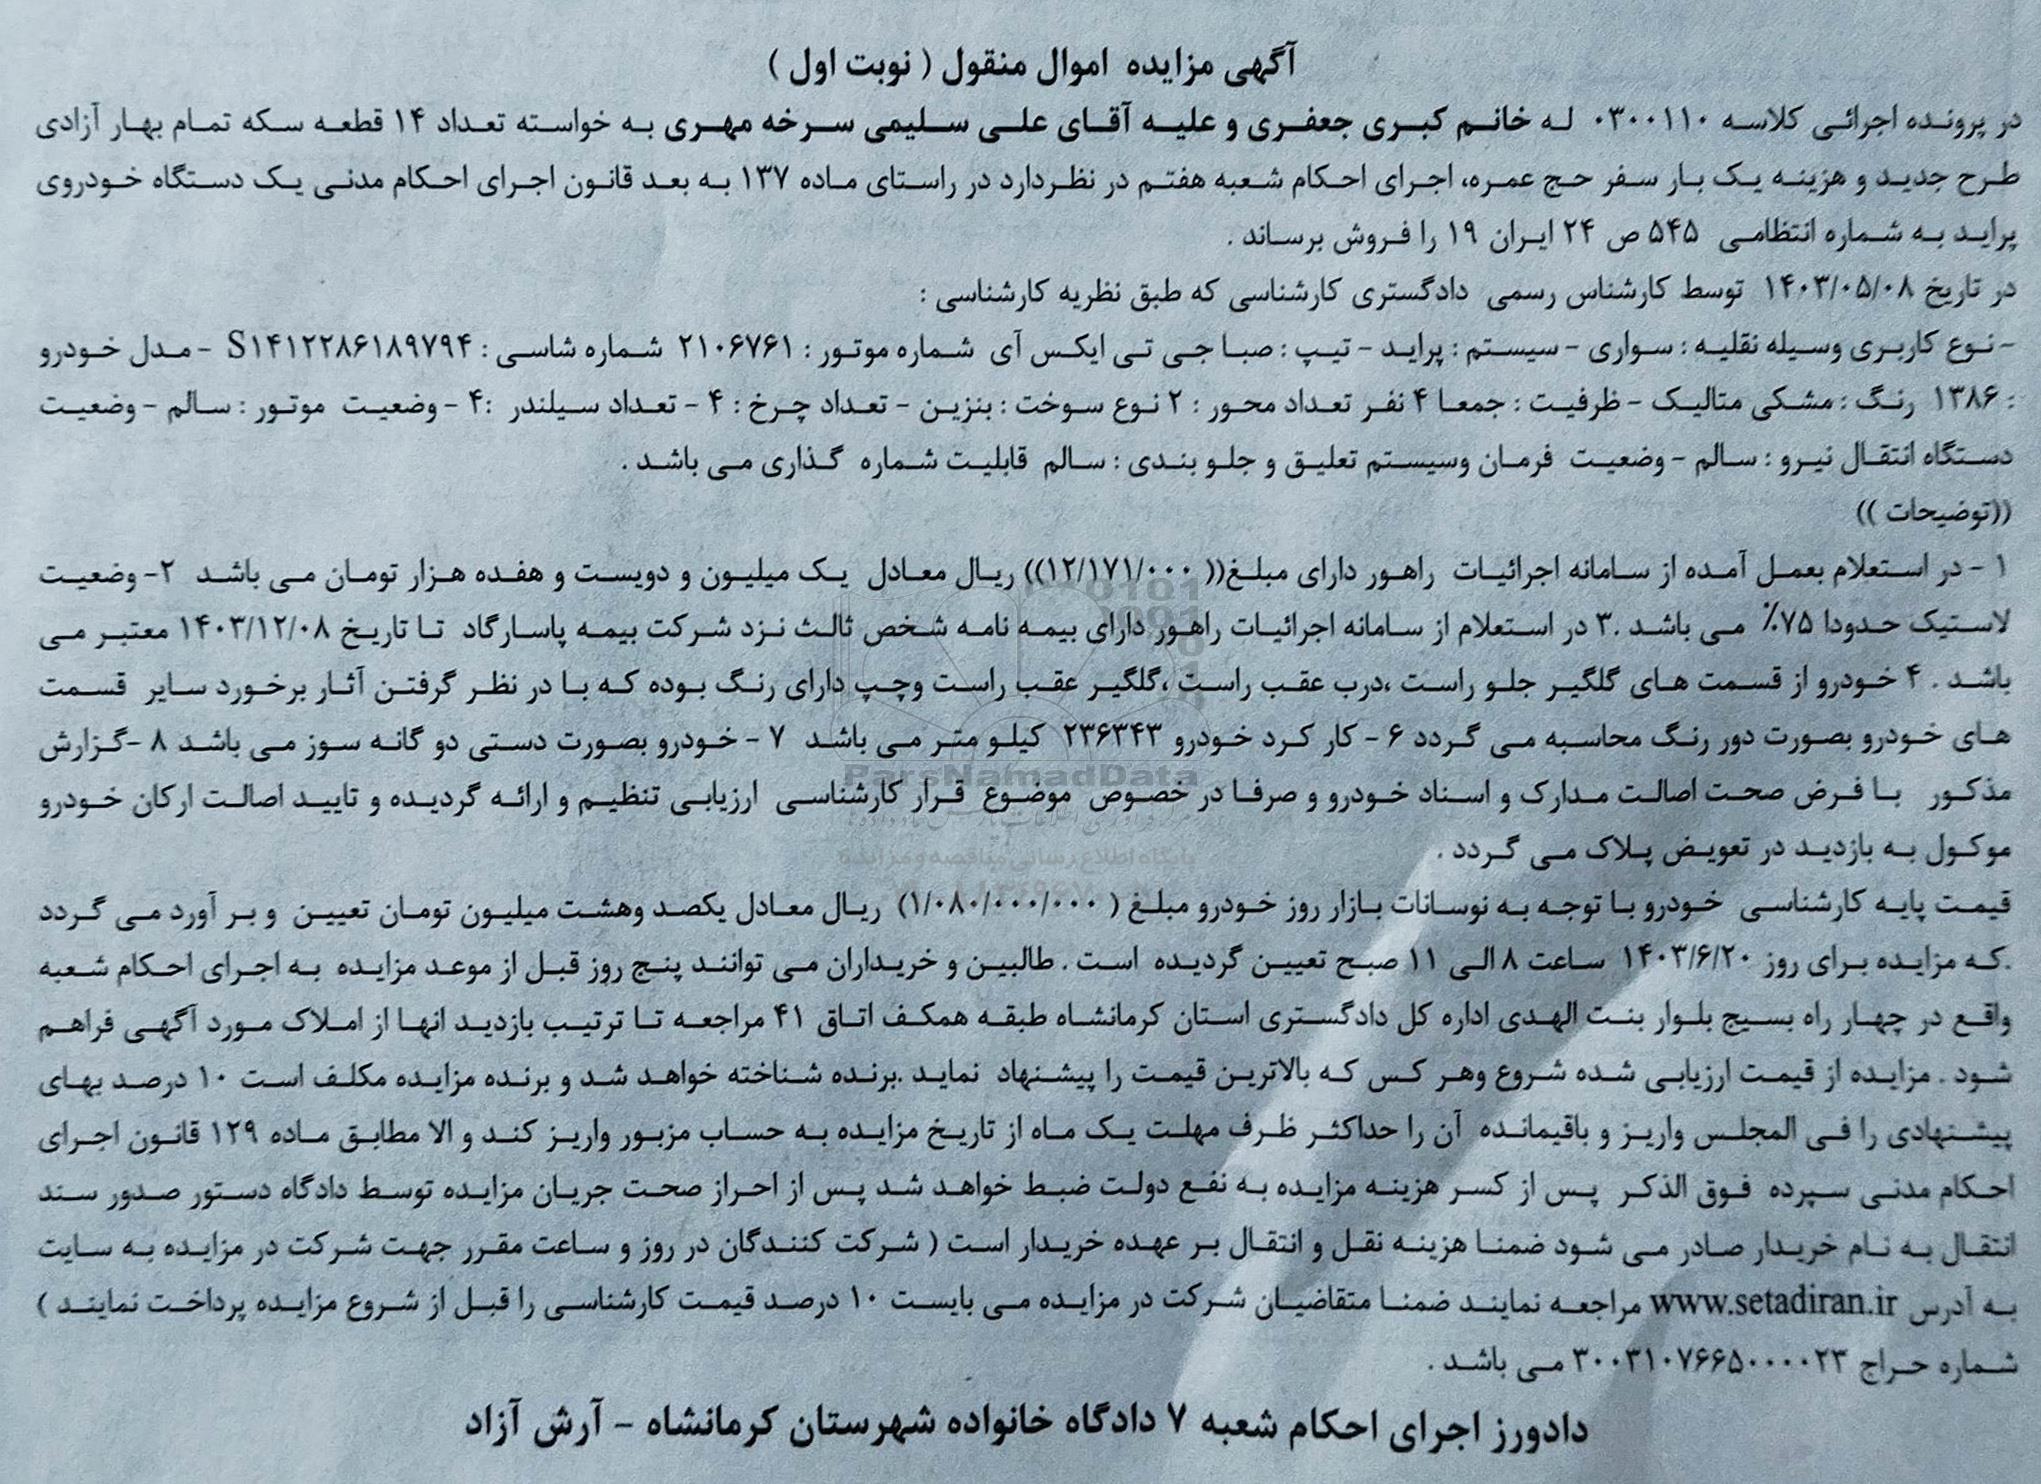 آگهی مزایده اموال منقول ( نوبت اول )
در پرونده اجرائی کلاسه ۰۳۰۰۱۱۰ له خانم کبری جعفری و علیه آقای علی سلیمی سرخه مهری به خواسته تعداد ۱۴ قطعه سکه تمام بهار آزادی
طرح جدید و هزینه یک بار سفر حج عمره، اجرای احکام شعبه هفتم در نظردارد در راستای ماده ۱۳۷ به بعد قانون اجرای احکام مدنی یک دستگاه خودروی
پراید به شماره انتظامی ۵۴۵ ص ۲۴ ایران ۱۹ را فروش برساند .
در تاریخ ۱۴۰۳/۰۵/۰۸ توسط کارشناس رسمی دادگستری کارشناسی که طبق نظریه کارشناسی :
- نوع کاربری وسیله نقلیه : سواری - سیستم : پراید - تیپ : صبا جی تی ایکس آی شماره موتور : ۲۱۰۶۷۶۱ شماره شاسی : S۱۴۱۲۲۸۶۱۸۹۷۹۴ - مدل خودرو
: ۱۳۸۶ رنگ : مشکی متالیک - ظرفیت : جمعا ۴ نفر تعداد محور : ۲ نوع سوخت : بنزین - تعداد چرخ : ۴ - تعداد سیلندر :۴ - وضعیت موتور : سالم - وضعیت
دستگاه انتقال نیرو : سالم - وضعیت فرمان وسیستم تعلیق و جلو بندی : سالم قابلیت شماره گذاری می باشد .
((توضیحات ))
۱ - در استعلام بعمل آمده از سامانه اجرائیات راهور دارای مبلغ(( ۱۲/۱۷۱/۰۰۰)) ریال معادل یک میلیون و دویست و هفده هزار تومان می باشد ۲- وضعیت
لاستیک حدودا ۷۵٪ می باشد .۳ در استعلام از سامانه اجرائیات راهور دارای بیمه نامه شخص ثالث نزد شرکت بیمه پاسارگاد تا تاریخ ۱۴۰۳/۱۲/۰۸ معتبر می
باشد . ۴ خودرو از قسمت های گلگیر جلو راست ،درب عقب راست ،گلگیر عقب راست وچپ دارای رنگ بوده که با در نظر گرفتن آثار برخورد سایر قسمت
های خودرو بصورت دور رنگ محاسبه می گردد ۶ - کار کرد خودرو ۲۳۶۳۴۳ کیلو متر می باشد ۷ - خودرو بصورت دستی دو گانه سوز می باشد ۸ -گزارش
ParsNamadData
مذکور با فرض صحت اصالت مدارک و اسناد خودرو و صرفا در خصوص موضوع قرار کارشناسی ارزیابی تنظیم و ارائه گردیده و تایید اصالت ارکان خودرو
موکول به بازدید در تعویض پلاک می گردد .
پایگاه اطلاع رسانی مناقصه و مزایده
قیمت پایه کارشناسی خودرو با توجه به نوسانات بازار روز خودرو مبلغ ( ۱/۰۸۰/۰۰۰/۰۰۰) ریال معادل یکصد وهشت میلیون تومان تعیین و بر آورد می گردد
.که مزایده برای روز ۱۴۰۳/۶/۲۰ ساعت ۸ الی ۱۱ صبح تعیین گردیده است . طالبین و خریداران می توانند پنج روز قبل از موعد مزایده به اجرای احکام شعبه
واقع در چهار راه بسیج بلوار بنت الهدی اداره کل دادگستری استان کرمانشاه طبقه همکف اتاق ۴۱ مراجعه تا ترتیب بازدید انها از املاک مورد آگهی فراهم
شود . مزایده از قیمت ارزیابی شده شروع وهر کس که بالاترین قیمت را پیشنهاد نماید .برنده شناخته خواهد شد و برنده مزایده مکلف است ۱۰ درصد بهای
پیشنهادی را فی المجلس واریز و باقیمانده آن را حداکثر ظرف مهلت یک ماه از تاریخ مزایده به حساب مزبور واریز کند و الا مطابق ماده ۱۲۹ قانون اجرای
احکام مدنی سپرده فوق الذکر پس از کسر هزینه مزایده به نفع دولت ضبط خواهد شد پس از احراز صحت جریان مزایده توسط دادگاه دستور صدور سند
انتقال به نام خریدار صادر می شود ضمنا هزینه نقل و انتقال بر عهده خریدار است ( شرکت کنندگان در روز و ساعت مقرر جهت شرکت در مزایده به سایت
به آدرس www.setadiran.ir مراجعه نمایند ضمنا متقاضیان شرکت در مزایده می بایست ۱۰ درصد قیمت کارشناسی را قبل از شروع مزایده پرداخت نمایند )
شماره حراج ۳۰۰۳۱۰۷۶۶۵۰۰۰۰۲۳ می باشد .
دادورز اجرای احکام شعبه ۷ دادگاه خانواده شهرستان کرمانشاه - آرش آزاد